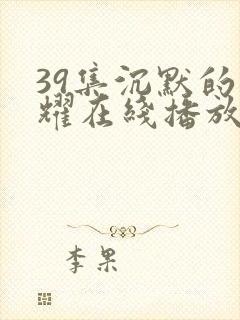 39集沉默的
耀在线播放
李果